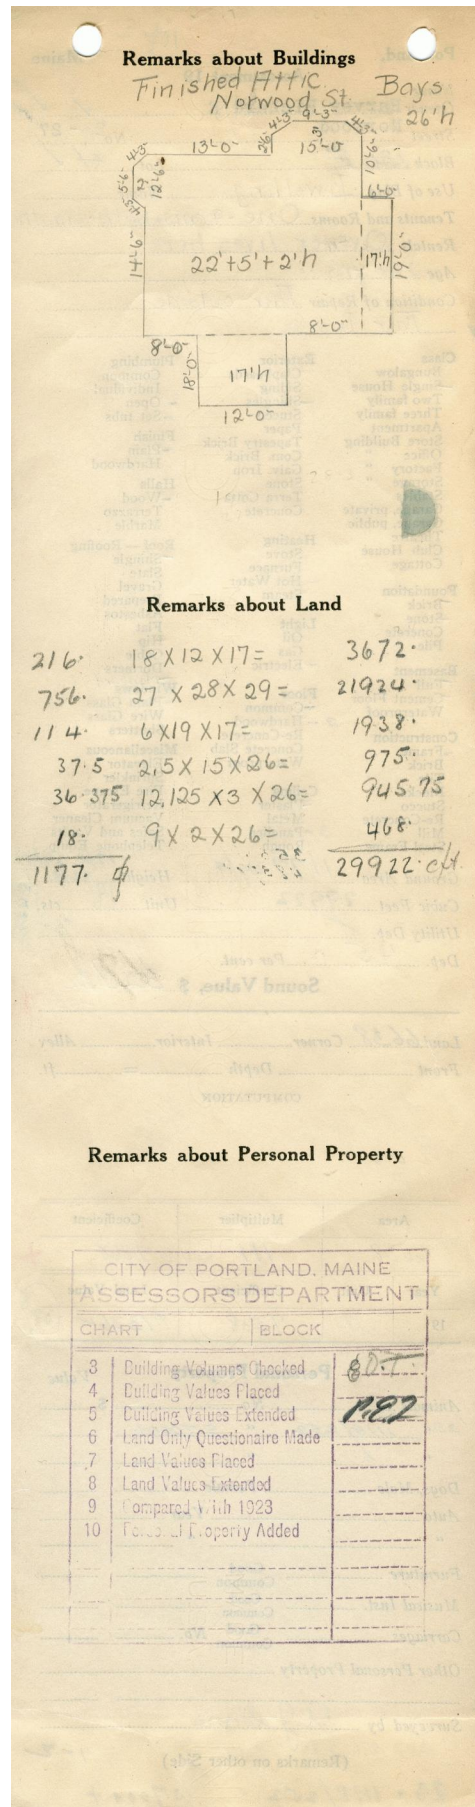 Remarks about Buildings
Finished Attic
Bays
Norwood St.
26'h
4'-3" 9'-3" 4'-3"
4'-3" 13'-0" 2'-6" 3' 15'-0" 10'-6"
5'-6" 12'-6" 6'-0"
14'-6" 22'+5'+2'h 17'h 19'-0"
8'-0" 8'-0"
18'-0" 17'h
12'-0"
Remarks about Land
216. 18 X 12 X 17= 3672.
756. 27 X 28 X 29= 21924.
114. 6 X 19 X 17= 1938.
37.5 2,5 X 15 X 26= 975.
36.375 12,125 X 3 X 26= 945 75
18. 9 X 2 X 26= 468.
1177. 29922. cft
Remarks about Personal Property
CITY OF PORTLAND, MAINE
ASSESSORS DEPARTMENT
CHART BLOCK
3 Building Volumes Checked
4 Building Values Placed
5 Building Values Extended
6 Land Only Questionaire Made
7 Land Values Placed
8 Land Values Extended
9 Compared With 1923
10 Personal Property Added